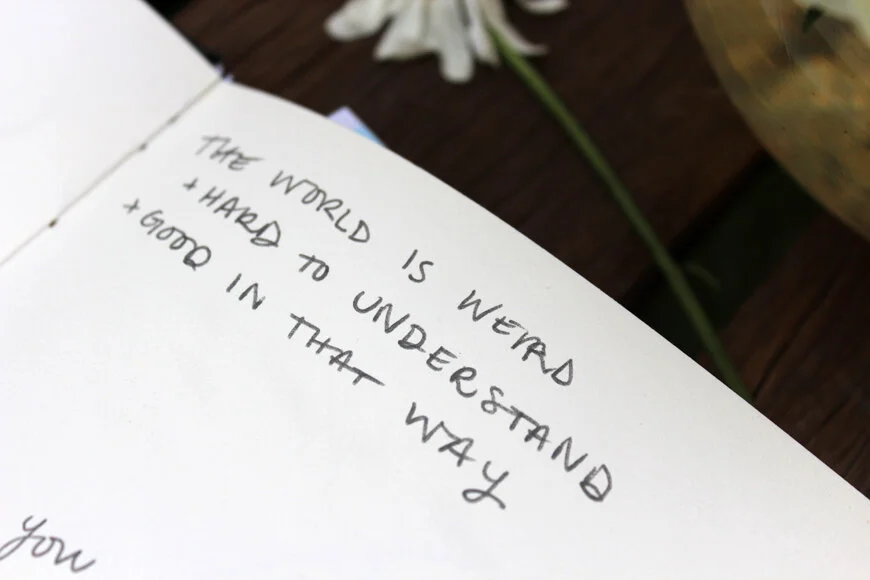 THE WORLD IS WEIRD
+ HARD TO UNDERSTAND
+ GOOD IN THAT WAY
you